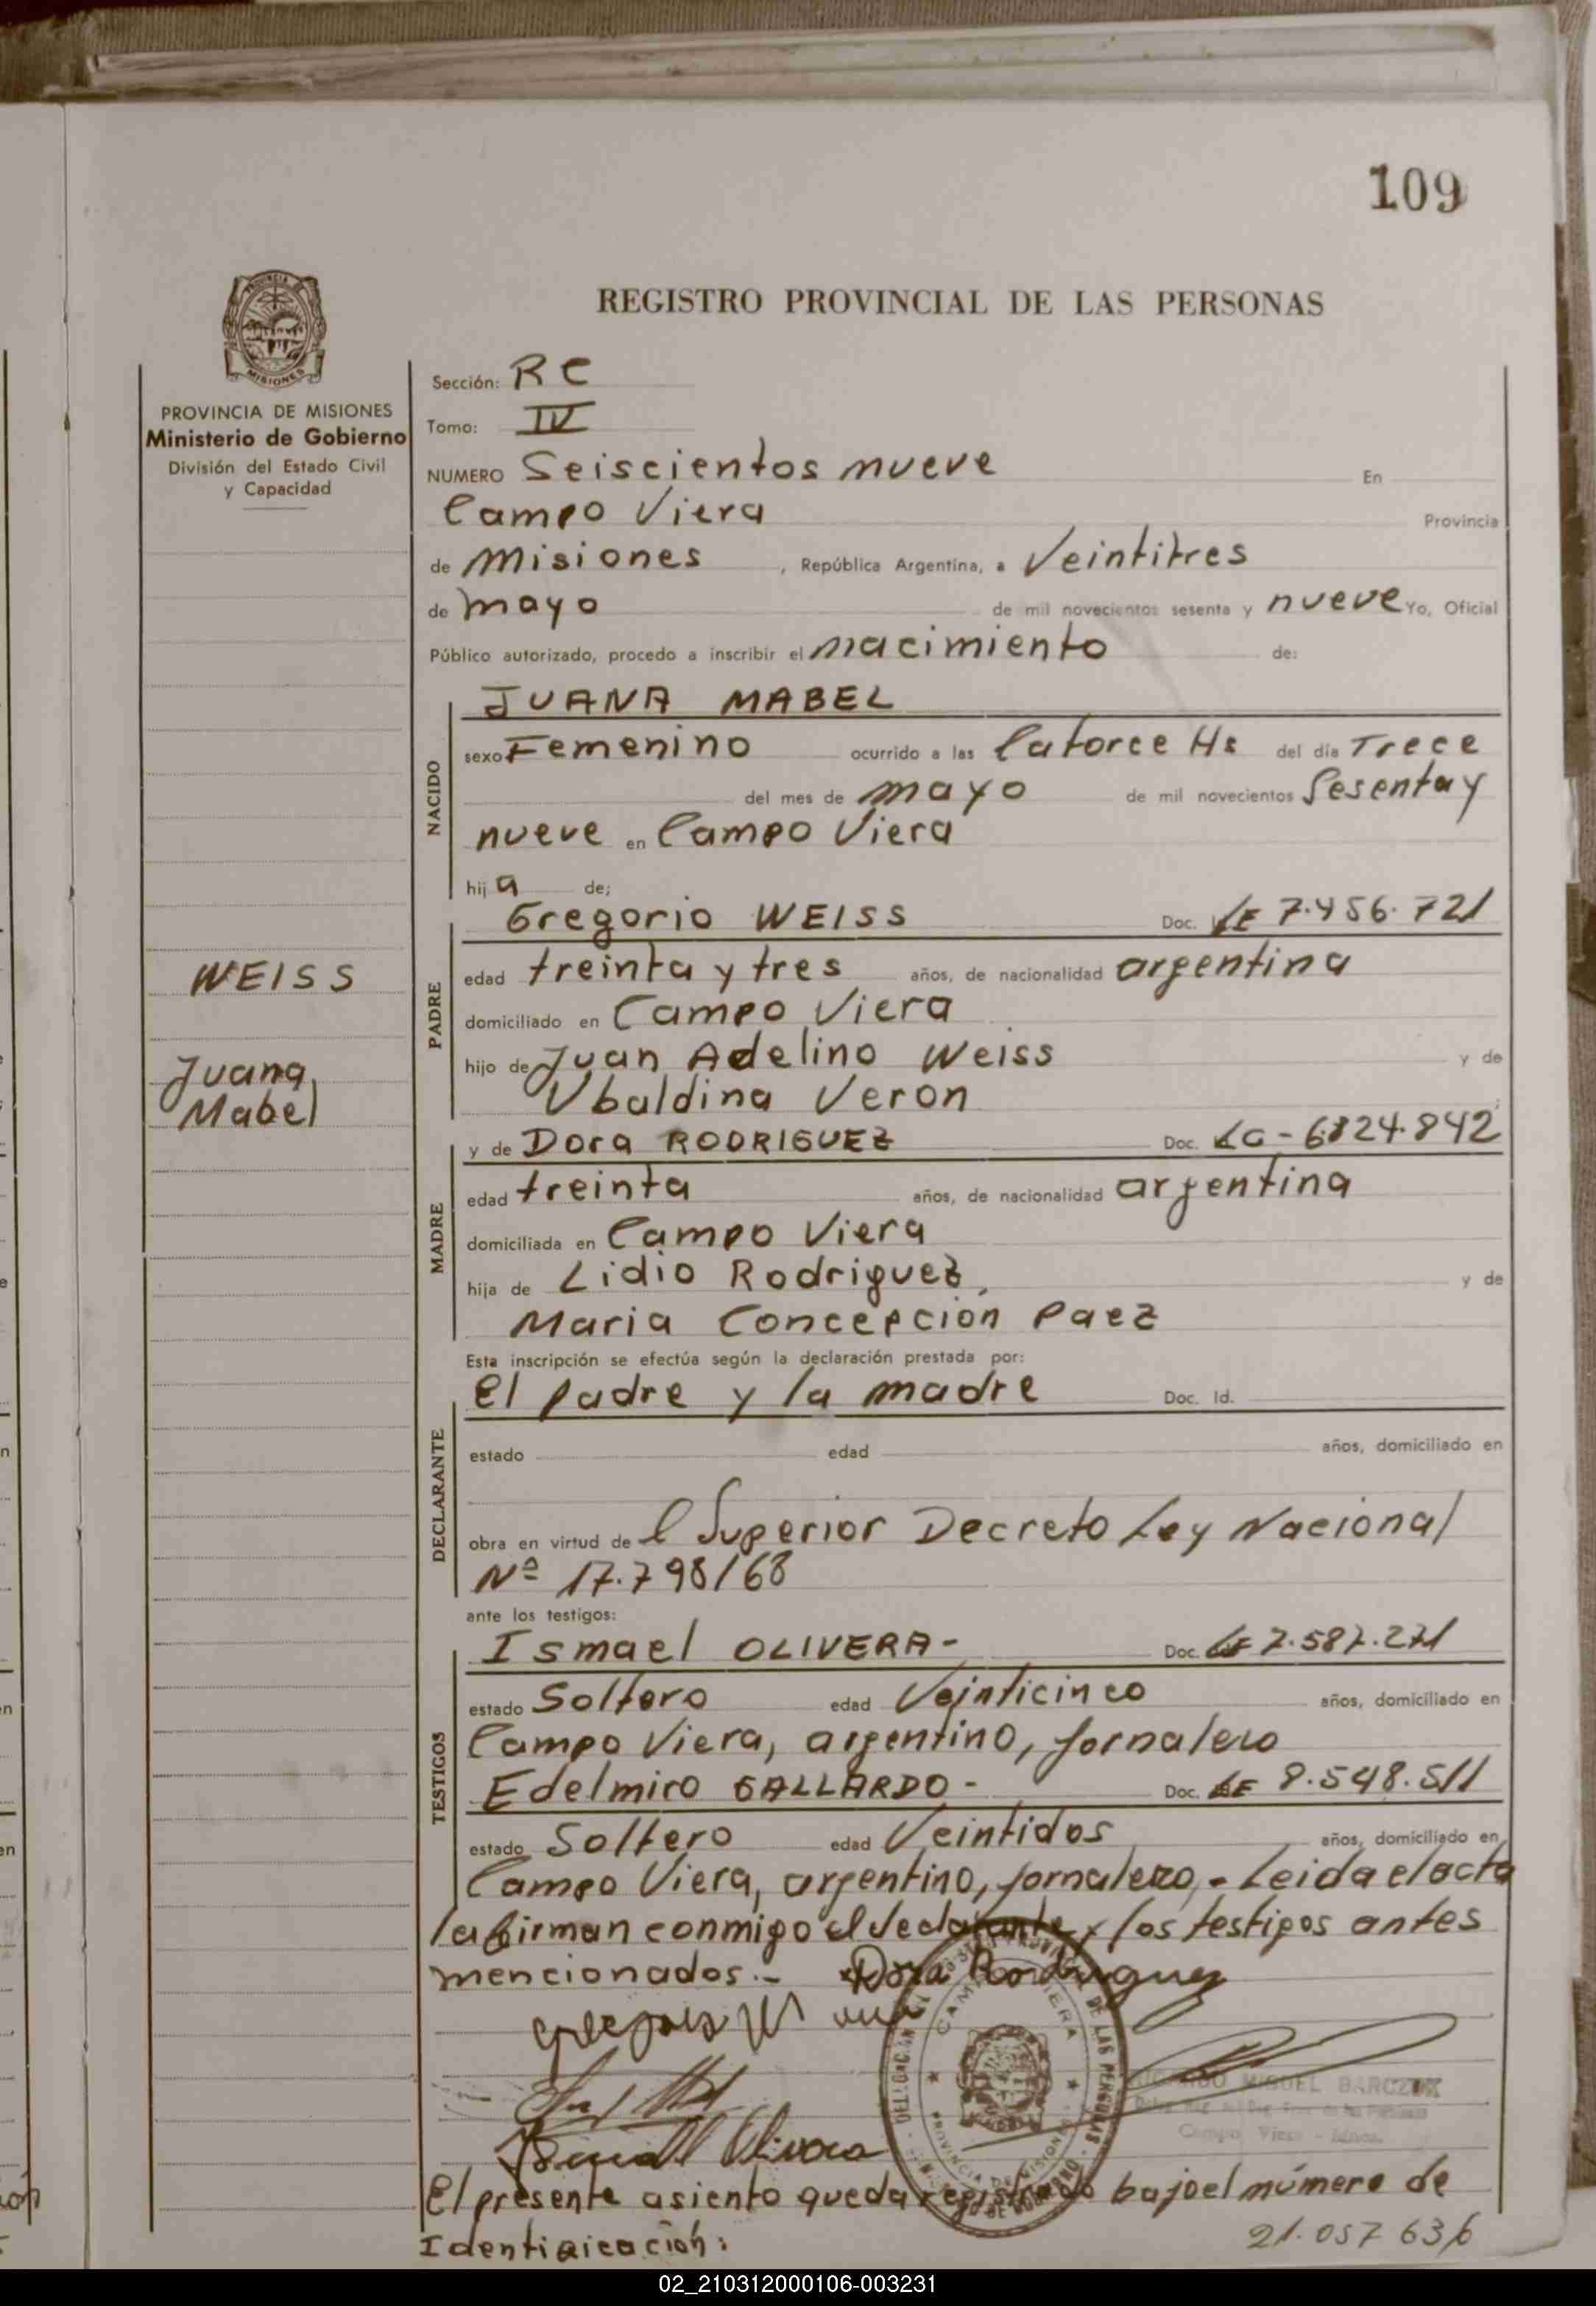 109
REGISTRO PROVINCIAL DE LAS PERSONAS
MISIONES
PROVINCIA DE MISIONES
Ministerio de Gobierno
División del Estado Civil
y Capacidad
WEISS
Juana
Mabel
Sección: RC
Tomo: IV
NUMERO Seiscientos nueve En
Campo Viera Provincia
de Misiones , República Argentina, a Veintitres
de mayo de mil novecientos sesenta y nueve Yo, Oficial
Público autorizado, procedo a inscribir el nacimiento de:
NACIDO
JUANA MABEL
sexo Femenino ocurrido a las Catorce Hs del día Trece
del mes de mayo de mil novecientos Sesenta y
nueve en Campo Viera
hij a de;
PADRE
Gregorio WEISS Doc. LE 7.456.721
edad treinta y tres años, de nacionalidad argentina
domiciliado en Campo Viera
hijo de Juan Adelino Weiss y de
Ubaldina Veron
MADRE
y de Dora RODRIGUEZ Doc. LC - 6824.842
edad treinta años, de nacionalidad argentina
domiciliada en Campo Viera
hija de Lidio Rodriguez, y de
Maria Concepción Paez
Esta inscripción se efectúa según la declaración prestada por:
DECLARANTE
el padre y la madre Doc. Id.
estado edad años, domiciliado en
obra en virtud de l Superior Decreto Ley Nacional
Nº 17.798/68
ante los testigos:
TESTIGOS
Ismael OLIVERA - Doc. LE 7.587.271
estado Soltero edad Veinticinco años, domiciliado en
Campo Viera, argentino, jornalero
Edelmiro GALLARDO - Doc. LE 8.548.511
estado Soltero edad Veintidos años, domiciliado en
Campo Viera, argentino, jornalero, - Leida el acta
la firman conmigo el declarante y los testigos antes
mencionados.- Dora Rodriguez
DE LAS PERSONAS
CAMPO VIERA
PROVINCIA DE MISIONES
MIGUEL BARCZUK
Campo Viera - Mnes.
Olivera
El presente asiento queda registrado bajo el número de
Identificación: 21.057 636
02_210312000106-003231